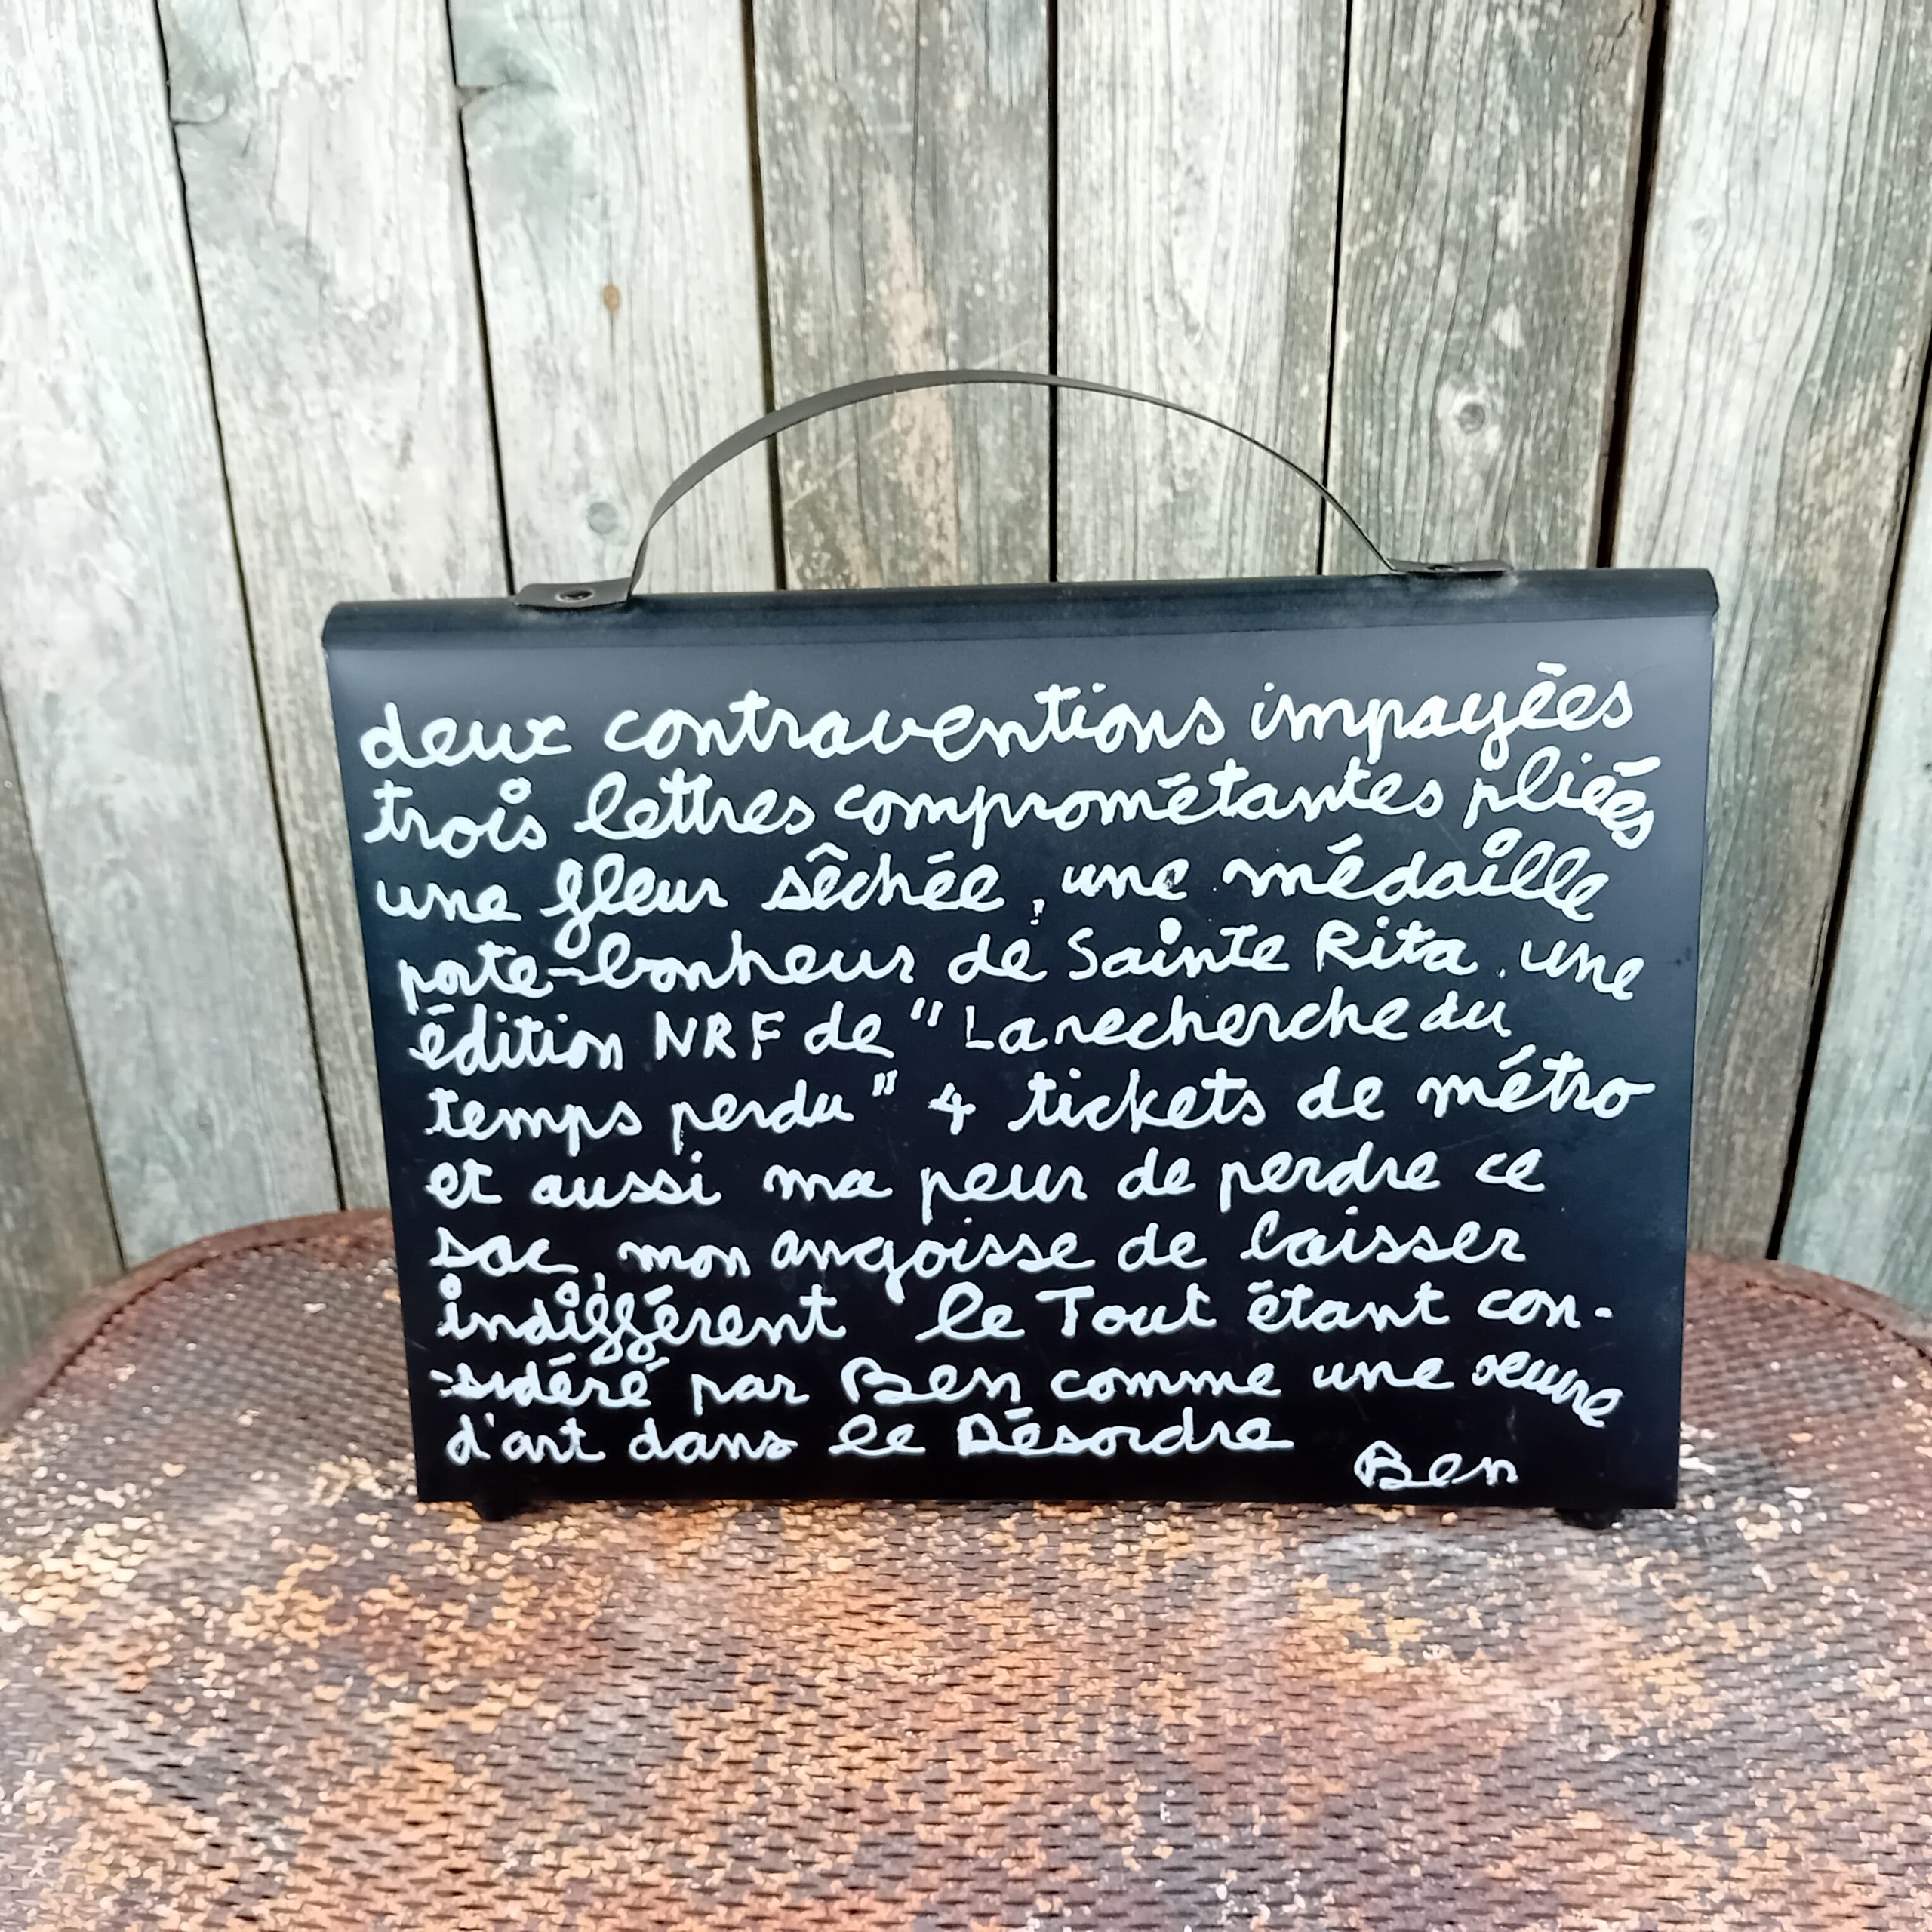 deux contraventions impayées
trois lettres comprométantes pliées
une fleur sêchée, une médaille
porte-bonheur de Sainte Rita, une
édition NRF de "La recherche du
temps perdu" 4 tickets de métro
et aussi ma peur de perdre ce
sac, mon angoisse de laisser
indifférent le Tout étant con-
-sidéré par Ben comme une oeuvre
d'art dans le Désordre
Ben